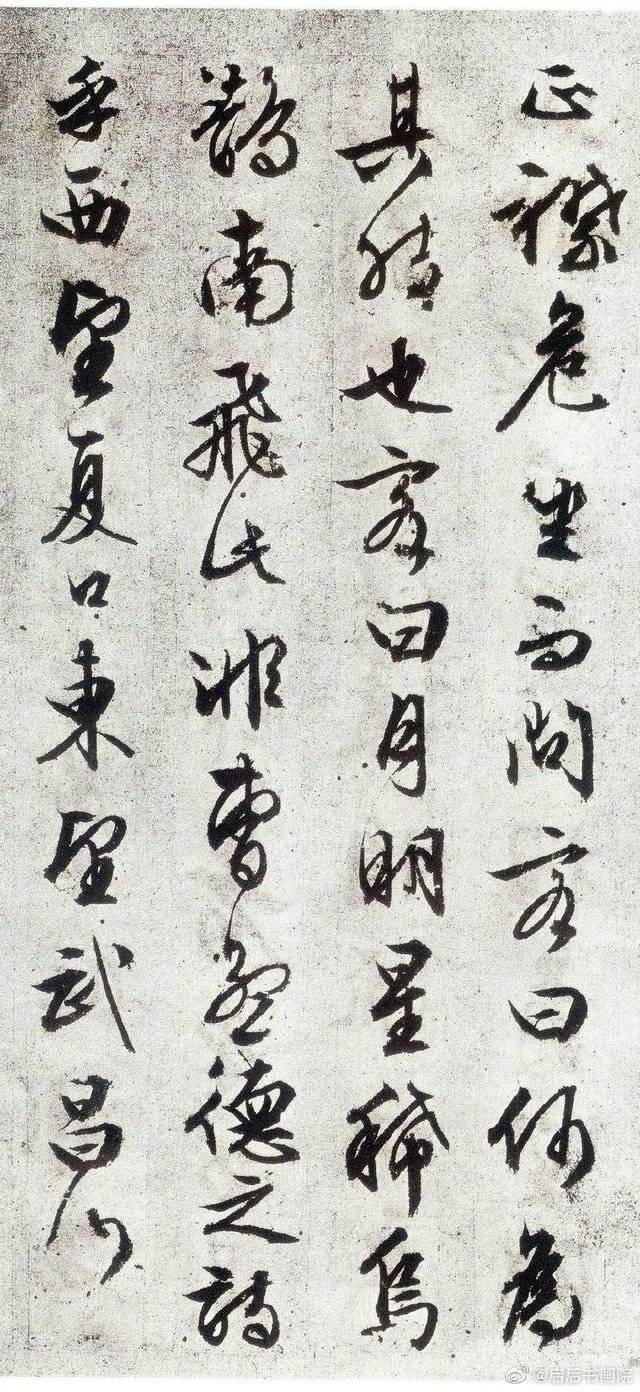 正襟危坐而問客曰何為
其然也客曰月明星稀烏
鵲南飛此非曹孟德之詩
乎西望夏口東望武昌山